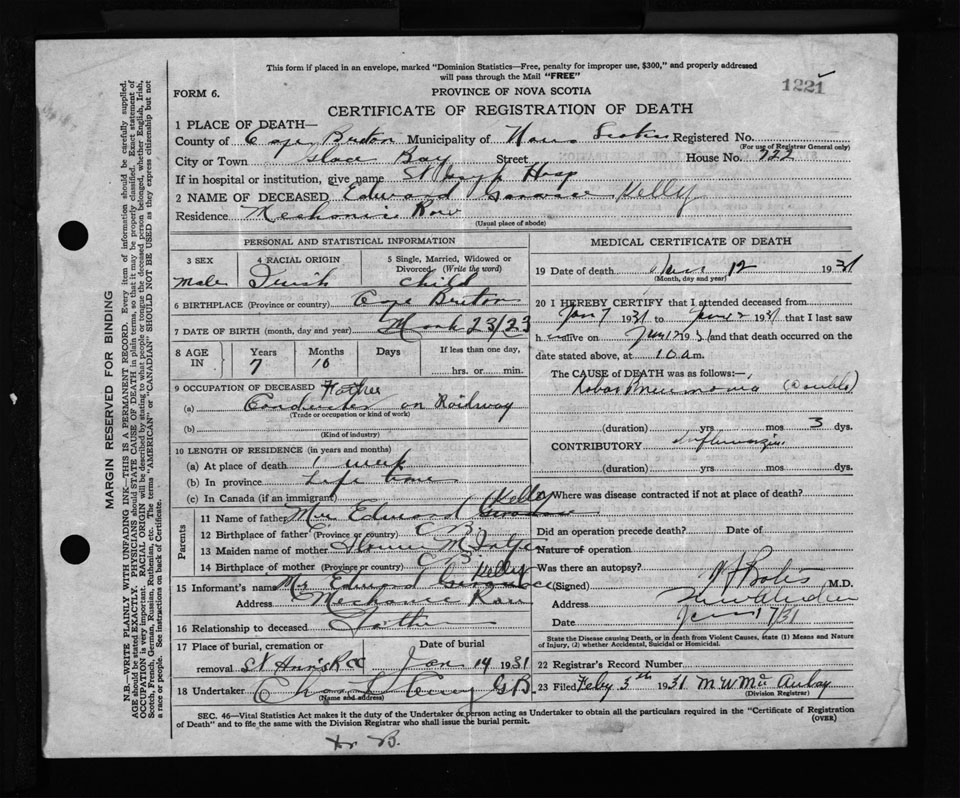 This form if placed in an envelope, marked "Dominion Statistics—Free, penalty for improper use, $300," and properly addressed
will pass through the Mail "FREE"
1221
FORM 6.
PROVINCE OF NOVA SCOTIA
CERTIFICATE OF REGISTRATION OF DEATH
1 PLACE OF DEATH—
County of Cape Breton Municipality of Nova Scotia Registered No.
(For use of Registrar General only)
City or Town Glace Bay Street House No. 722
If in hospital or institution, give name St Joseph Hosp
2 NAME OF DECEASED Edward Kelly
Residence Mechanic Row
(Usual place of abode)
PERSONAL AND STATISTICAL INFORMATION
3 SEX
male
4 RACIAL ORIGIN
Irish
5 Single, Married, Widowed or
Divorced. (Write the word)
Child
6 BIRTHPLACE (Province or country) Cape Breton
7 DATE OF BIRTH (month, day and year) March 23/23
8 AGE IN
Years 7
Months 10
Days
If less than one day,
hrs. or min.
9 OCCUPATION OF DECEASED Father
(a) Conductor on Railway
(Trade or occupation or kind of work)
(b)
(Kind of industry)
10 LENGTH OF RESIDENCE (in years and months)
(a) At place of death 1 week
(b) In province Life time
(c) In Canada (if an immigrant)
Parents
11 Name of father Mr Edward Kelly
12 Birthplace of father (Province or country) C B
13 Maiden name of mother
14 Birthplace of mother (Province or country) C B
15 Informant's name Mr Edward Kelly
Address Mechanic Row
16 Relationship to deceased Father
17 Place of burial, cremation or Date of burial
removal St Anns R C C Jan 14 1931
18 Undertaker Chas G B
(Name and address)
MEDICAL CERTIFICATE OF DEATH
19 Date of death Jan 12 1931
(Month, day and year)
20 I HEREBY CERTIFY that I attended deceased from
Jan 7 1931 to Jan 12 1931 that I last saw
h alive on Jan 12 1931 and that death occurred on the
date stated above, at 10 a.m.
The CAUSE OF DEATH was as follows:—
Lobar Pneumonia (Double)
(duration) yrs mos 3 dys.
CONTRIBUTORY Influenza
(duration) yrs. mos dys.
21 Where was disease contracted if not at place of death?
Did an operation precede death? Date of
Nature of operation
Was there an autopsy?
(Signed) M.D.
Address New Aberdeen
Date Jan 17/31
State the Disease causing Death, or in death from Violent Causes, state (1) Means and Nature
of Injury, (2) whether Accidental, Suicidal or Homicidal.
22 Registrar's Record Number
23 Filed Feby 3rd 1931 M W Mc Aulay
(Division Registrar)
SEC. 46—Vital Statistics Act makes it the duty of the Undertaker or person acting as Undertaker to obtain all the particulars required in the "Certificate of Registration
of Death" and to file the same with the Division Registrar who shall issue the burial permit.
(OVER)
B.
MARGIN RESERVED FOR BINDING
N.B.—WRITE PLAINLY WITH UNFADING INK—THIS IS A PERMANENT RECORD. Every item of information should be carefully supplied.
AGE should be stated EXACTLY. PHYSICIANS should STATE CAUSE OF DEATH in plain terms, so that it may be properly classified. Exact statement of
OCCUPATION is very important. RACIAL ORIGIN will be described by stating to what people or tongue the deceased person belonged, whether English, Irish,
Scotch, French, German, Russian, Ruthenian, etc. The terms "AMERICAN" or "CANADIAN" SHOULD NOT BE USED as they express citizenship but not
a race or people. See instructions on back of Certificate.